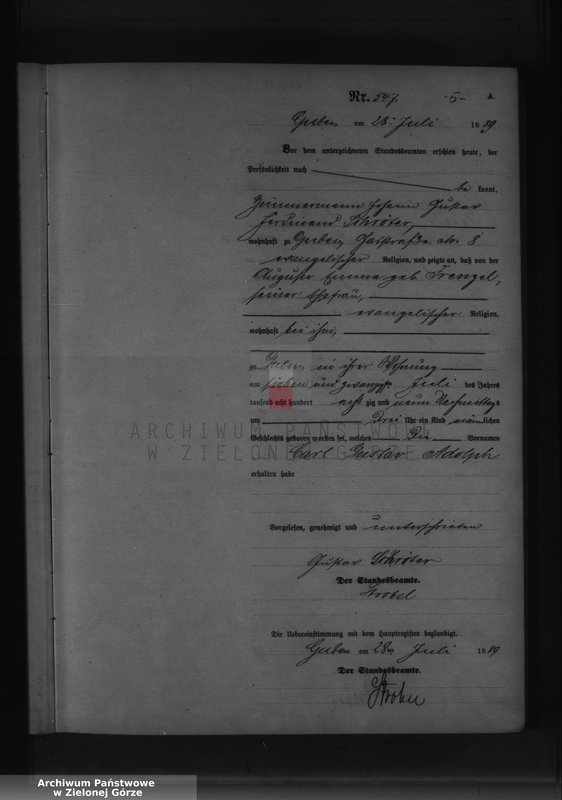 Nr. 547. -5- A.
Guben, am 28. Juli 1889
Vor dem unterzeichneten Standesbeamten erschien heute, der
Persönlichkeit nach
be kannt,
Zimmermann Johann Gustav
Ferdinand Schröter,
wohnhaft zu Guben, No. 8
evangelischer Religion, und zeigte an, daß von der
Auguste Emma geb. Frenzel,
seiner Ehefrau,
evangelischer Religion,
wohnhaft bei ihm,
zu Guben in ihrer Wohnung
am sieben und zwanzigsten Juli des Jahres
tausend acht hundert acht zig und neun Nachmittags
um drei Uhr ein Kind männlichen
Geschlechts geboren worden sei, welches die Vornamen
Carl Gustav Adolph
erhalten habe
Vorgelesen, genehmigt und unterschrieben
Gustav Schröter
Der Standesbeamte.
Strobel
Die Uebereinstimmung mit dem Hauptregister beglaubigt.
Guben am 28ten Juli 1889
Der Standesbeamte.
Strobel
ARCHIWUM PAŃSTWOWE
W ZIELONEJ GÓRZE
Archiwum Państwowe
w Zielonej Górze